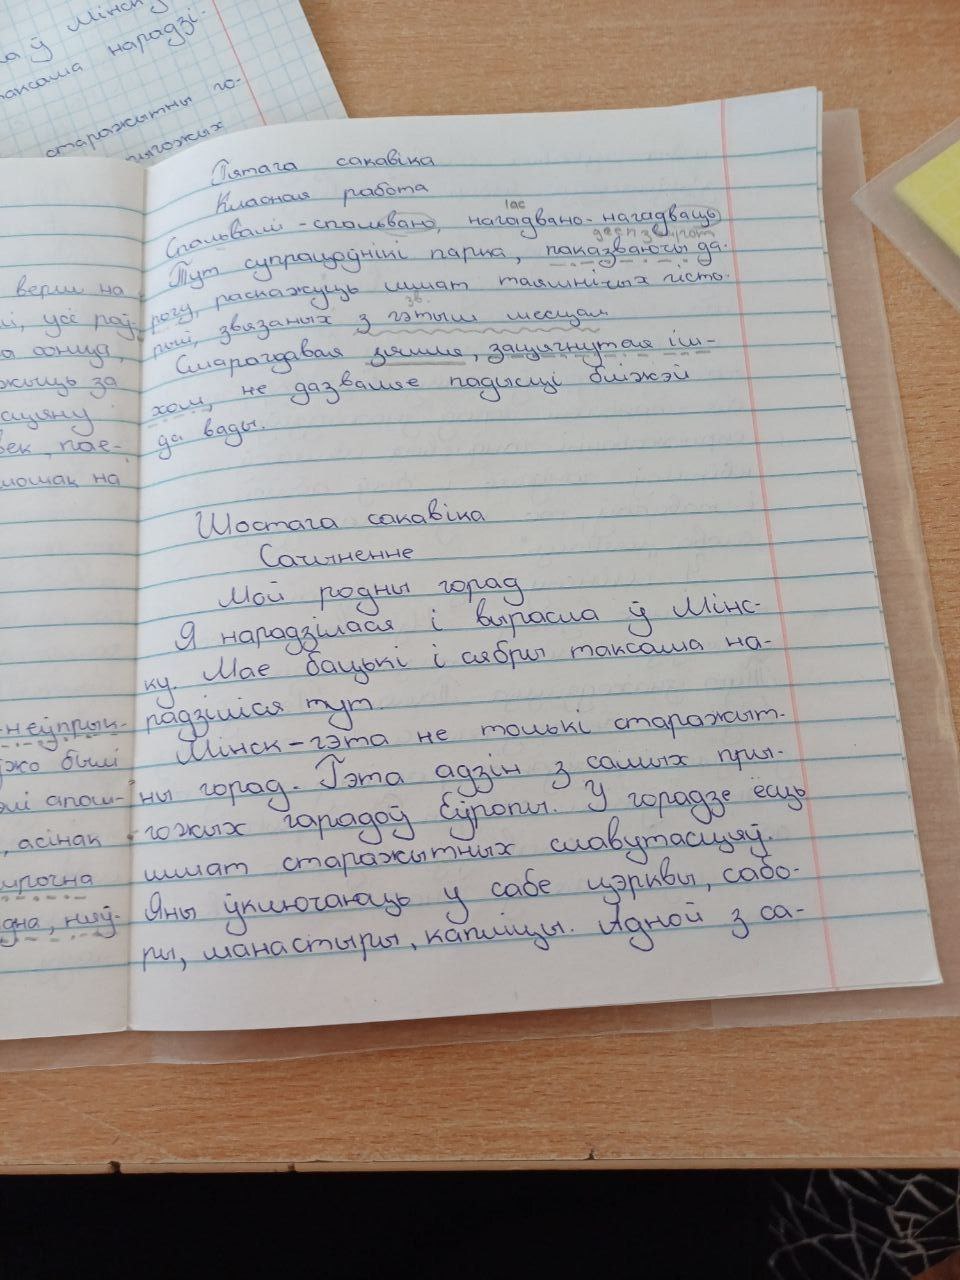 а ў Мінску
таксама нарадзі-
старажытны го-
прыгожых
верш на
усе
сонца,
за
век, пае-
на
неўпрык-
былі
апош-
асінак
дна, няў-
Пятага сакавіка
Класная работа
Тут супрацоўнікі парка, паказваючы да-
рогу, раскажуць шмат таямнічых гісто-
рый, звязаных з гэтым месцам.
зв.
Смарагдавая зямля, зацягнутая ім-
хом, не дазваляе падысці бліжэй
да вады.
Шостага сакавіка
Сачыненне
Мой родны горад
Я нарадзілася і вырасла ў Мінс-
ку. Мае бацькі і сябры таксама на-
радзіліся тут.
Мінск – гэта не толькі старажыт-
ны горад. Гэта адзін з самых пры-
гожых гарадоў Еўропы. У горадзе ёсць
шмат старажытных славутасцяў.
Яны ўключаюць у сабе цэрквы, сабо-
ры, манастыры, капліцы. Адной з са-